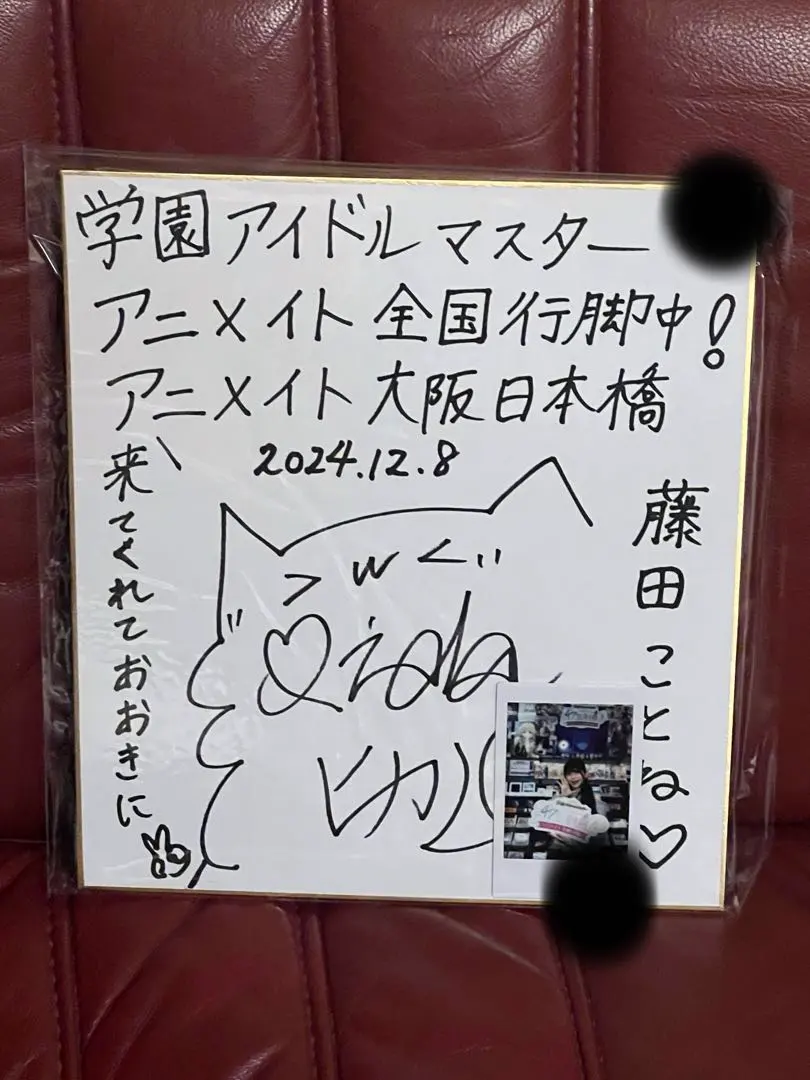 学園アイドルマスター
アニメイト全国行脚中!
アニメイト大阪日本橋
2024.12.8
来てくれておおきに
>w<
藤田ことね♡
ヒカル